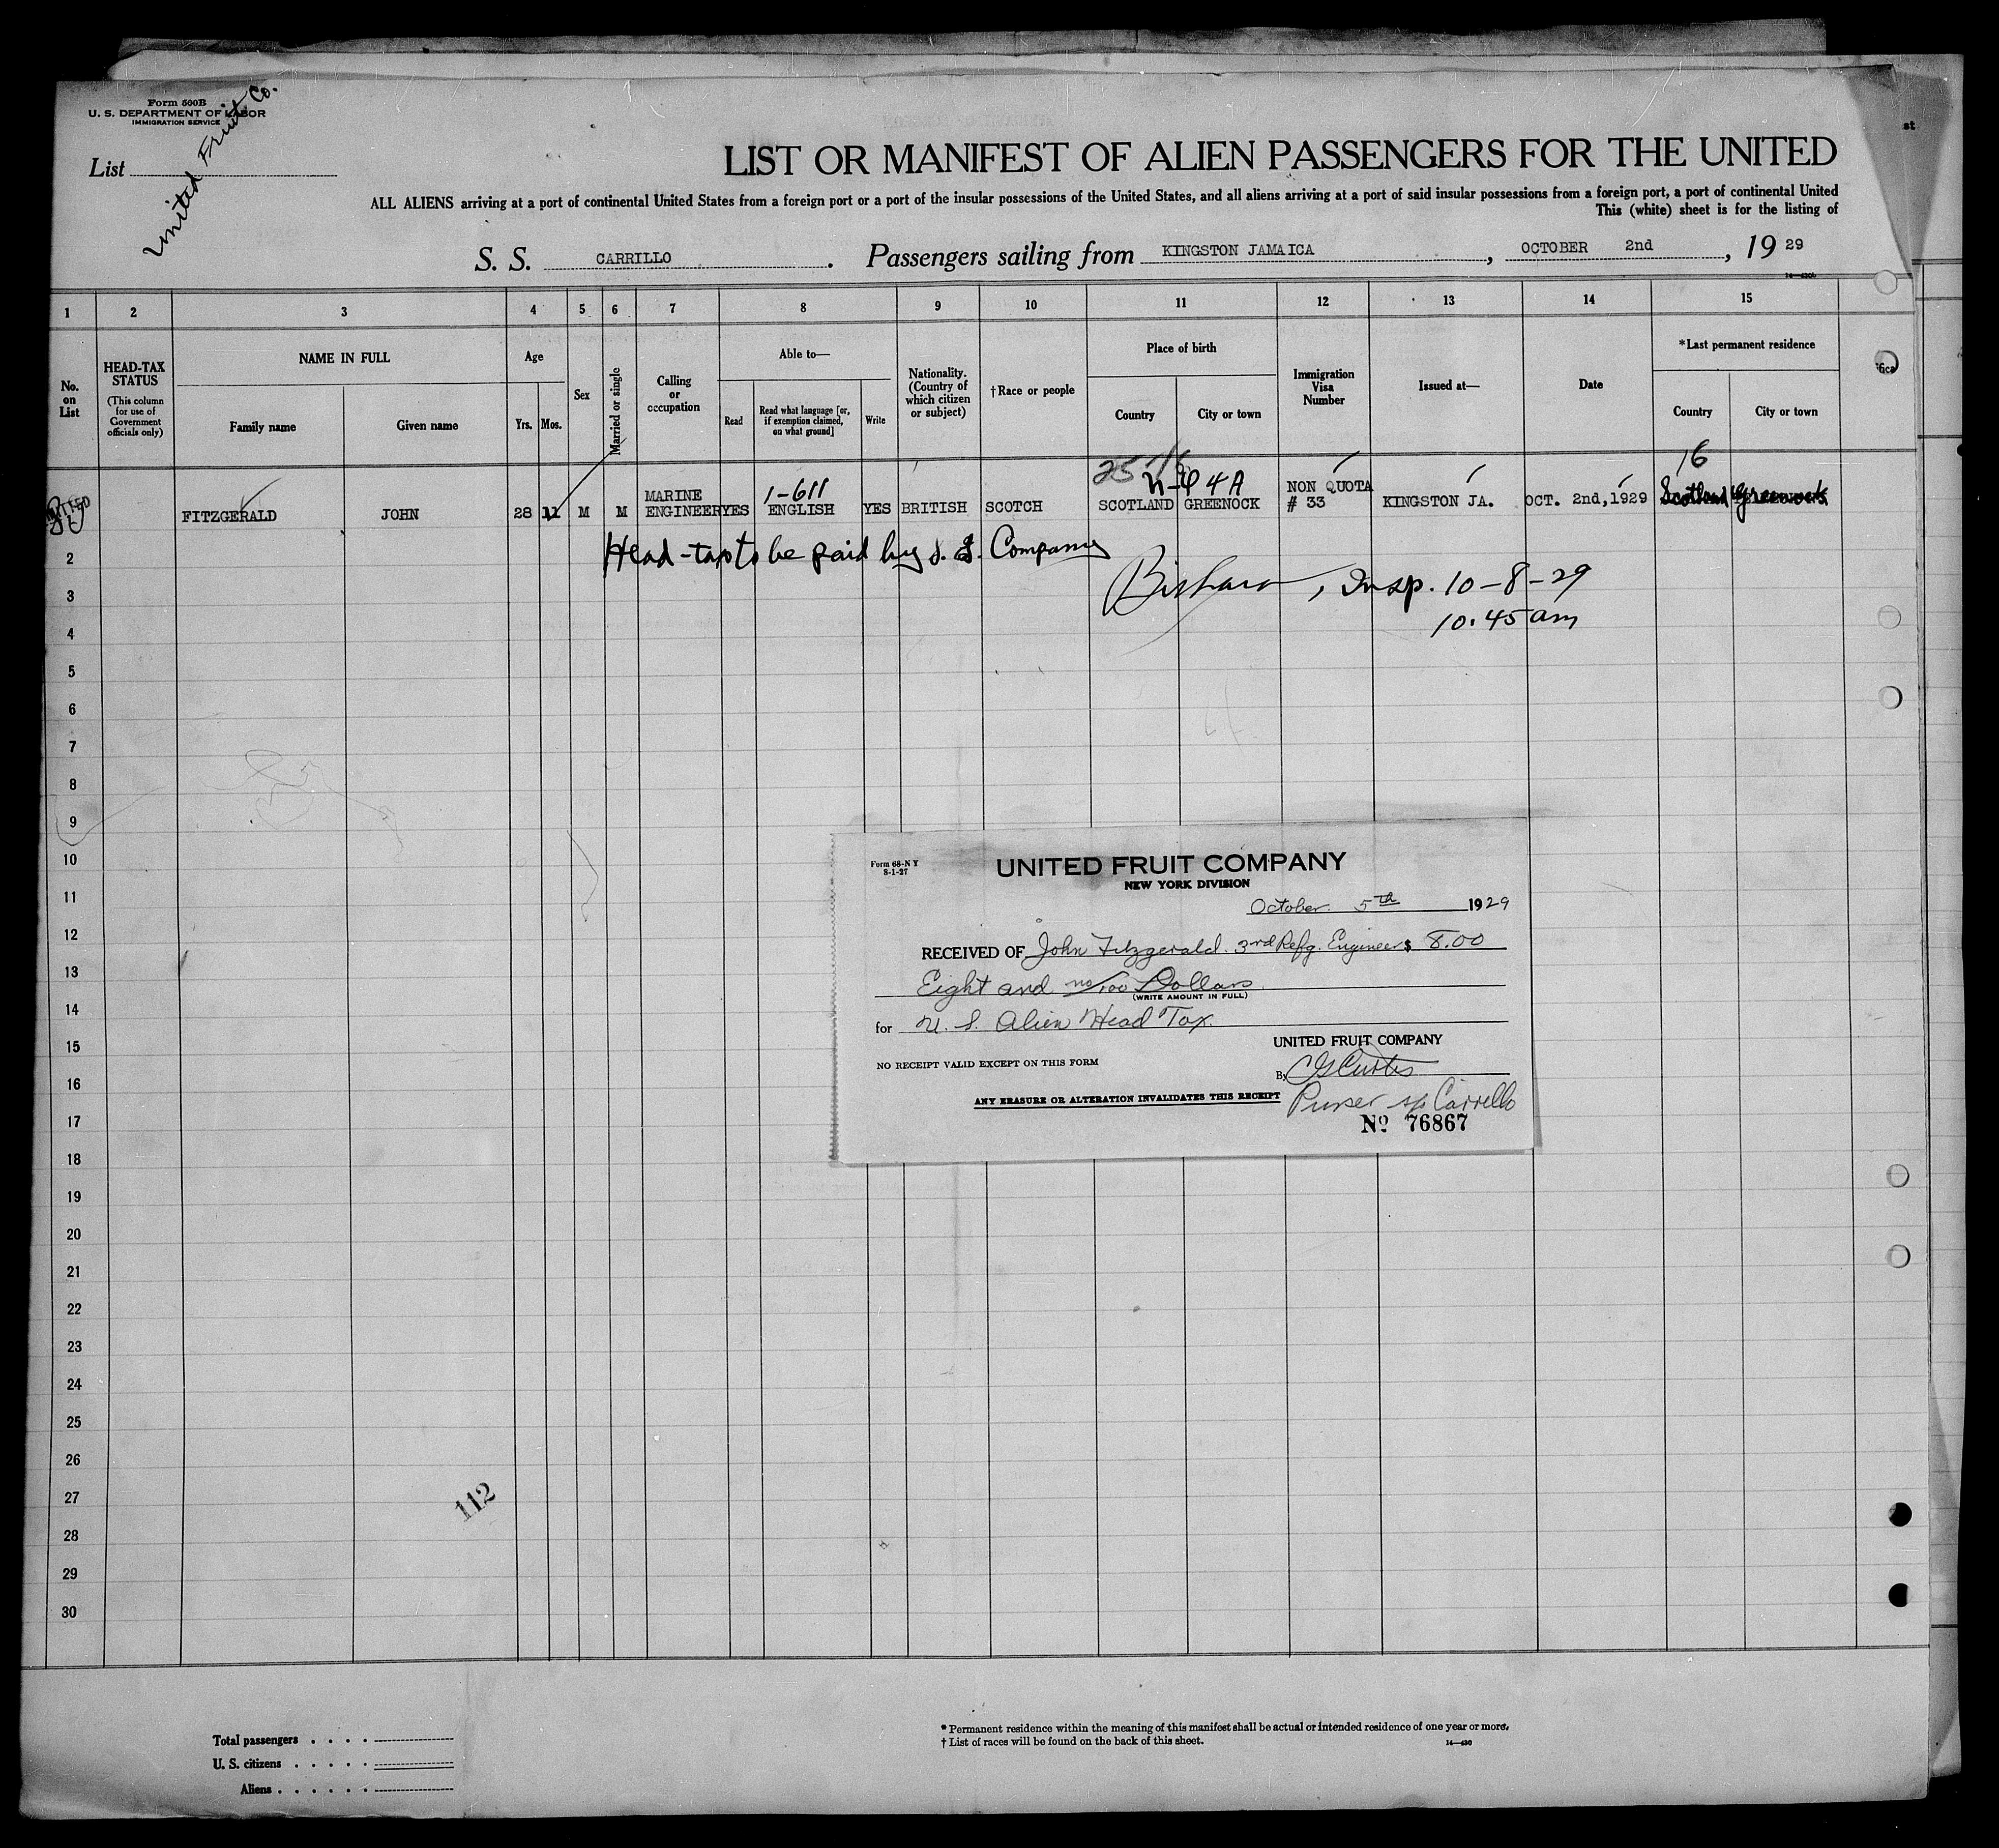 Form 500B
U. S. DEPARTMENT OF LABOR
IMMIGRATION SERVICE
United Fruit Co.
List
st
LIST OR MANIFEST OF ALIEN PASSENGERS FOR THE UNITED
ALL ALIENS arriving at a port of continental United States from a foreign port or a port of the insular possessions of the United States, and all aliens arriving at a port of said insular possessions from a foreign port, a port of continental United
This (white) sheet is for the listing of
S. S. CARRILLO. Passengers sailing from KINGSTON JAMAICA, OCTOBER 2nd, 19 29
1 2 3 4 5 6 7 8 9 10 11 12 13 14 15
No. on List
HEAD-TAX STATUS
(This column for use of Government officials only)
NAME IN FULL
Family name
Given name
Age
Yrs. Mos.
Sex
Married or single
Calling or occupation
Able to—
Read
Read what language [or, if exemption claimed, on what ground]
Write
Nationality. (Country of which citizen or subject)
†Race or people
Place of birth
Country
City or town
Immigration Visa Number
Issued at—
Date
*Last permanent residence
Country
City or town
25 4A
16
1-611
FITZGERALD JOHN 28 11 M M MARINE ENGINEER YES ENGLISH YES BRITISH SCOTCH SCOTLAND GREENOCK NON QUOTA # 33 KINGSTON JA. OCT. 2nd, 1929 Scotland Greenock
Head-tax to be paid by S. S. Company
, Insp. 10-8-29
10.45 am
2
3
4
5
6
7
8
9
10
11
12
13
14
15
16
17
18
19
20
21
22
23
24
25
26
27
28
29
30
Form 68-N Y
8-1-27
UNITED FRUIT COMPANY
NEW YORK DIVISION
October 5th 1929
RECEIVED OF John Fitzgerald. 3rd Refg. Engineer $ 8.00
Eight and no/100 Dollars
(WRITE AMOUNT IN FULL)
for U. S. Alien Head Tax.
UNITED FRUIT COMPANY
NO RECEIPT VALID EXCEPT ON THIS FORM
By CG Curtis
ANY ERASURE OR ALTERATION INVALIDATES THIS RECEIPT
Purser s/s Carrillo
No 76867
112
Total passengers
U. S. citizens
Aliens
* Permanent residence within the meaning of this manifest shall be actual or intended residence of one year or more.
† List of races will be found on the back of this sheet.